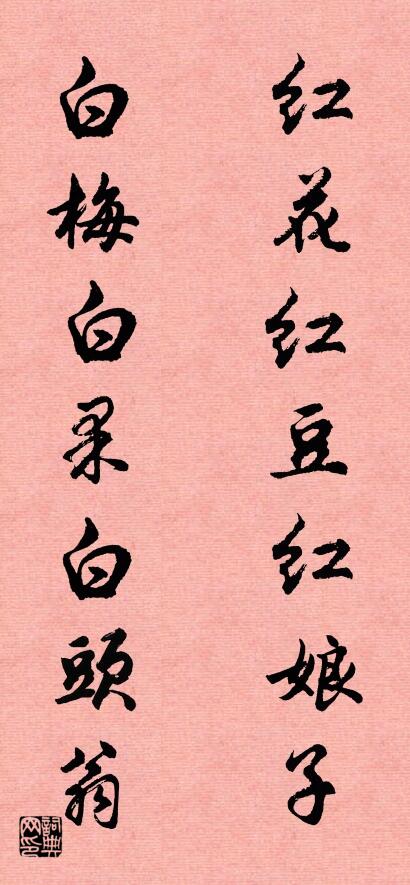 红花红豆红娘子
白梅白果白頭翁
詞典网印